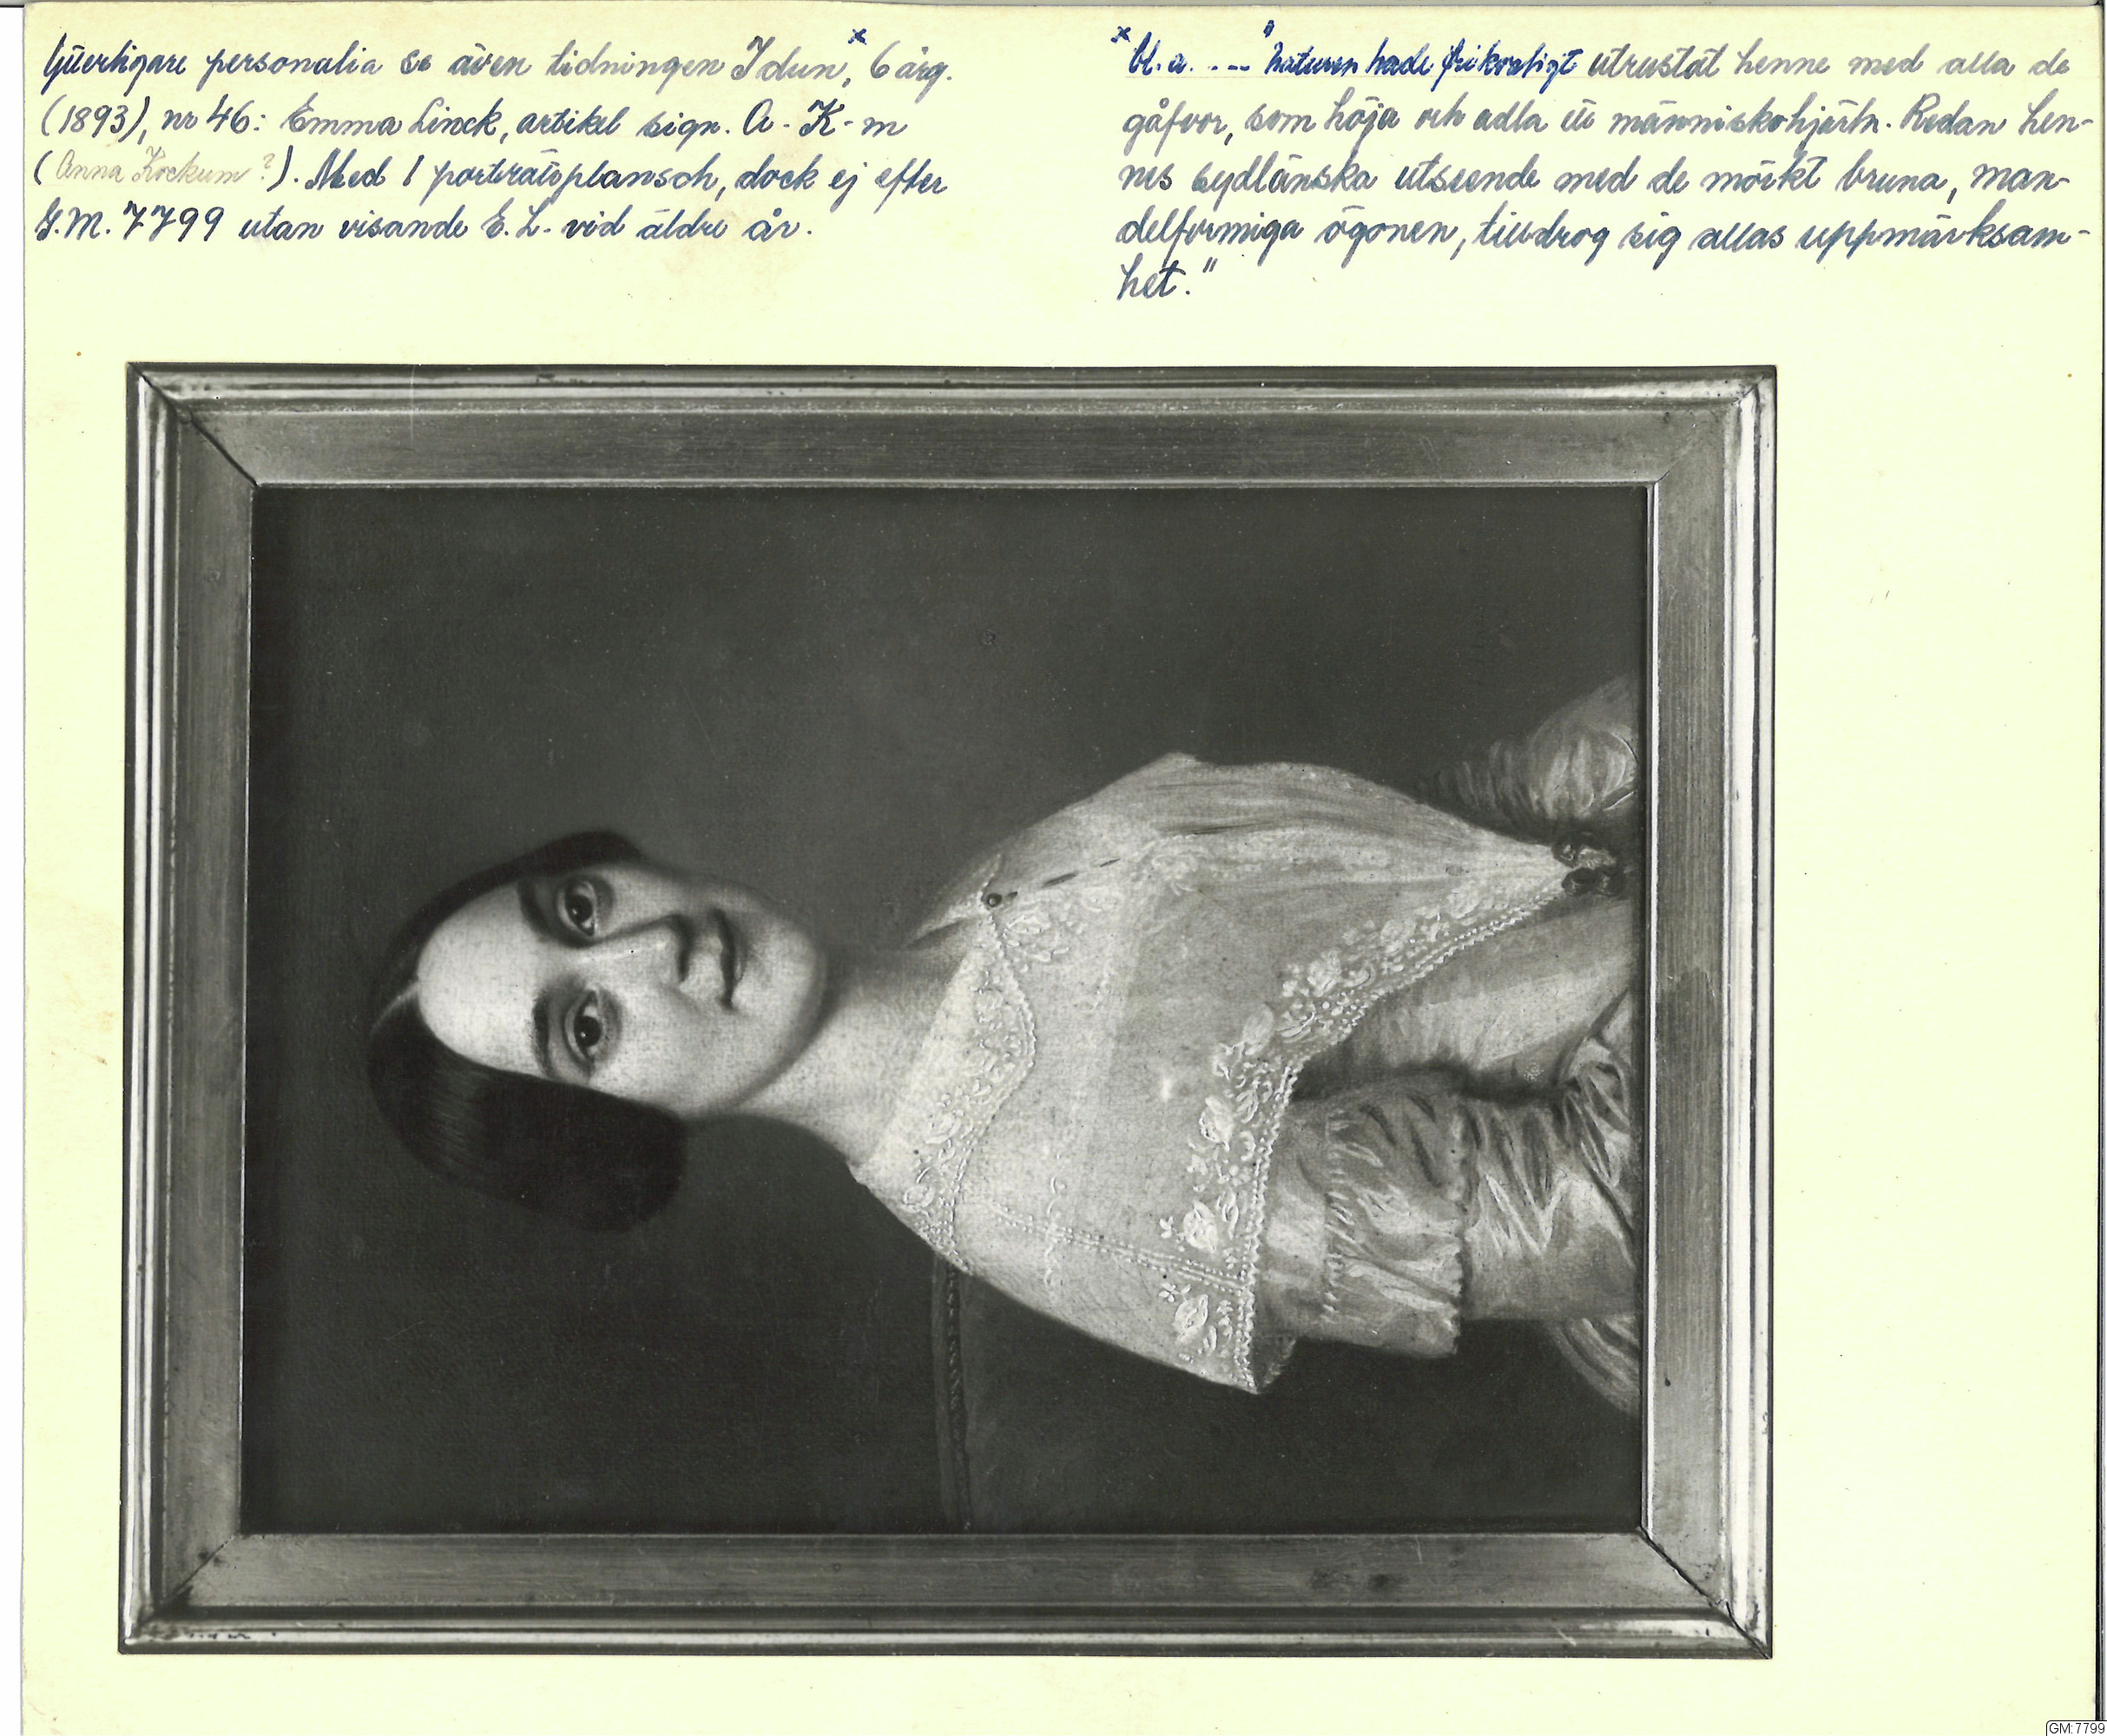 Ytterligare personalia se även tidningen Idun,ˣ 6 årg.
(1893), nr 46: Emma Linck, artikel sign. A. K-m
(Anna Kockum?). Med 1 porträttplansch, dock ej efter
G.M. 7799 utan visande E. L. vid äldre år.
ˣ Bl. a. .-- "naturen hade frikostigt utrustat henne med alla de
gåfvor, som höja och adla ett människohjärta. Redan hen-
nes sydlänska utseende med de mörkt bruna, man-
delformiga ögonen, tilldrog sig allas uppmärksam-
het."
GM:7799